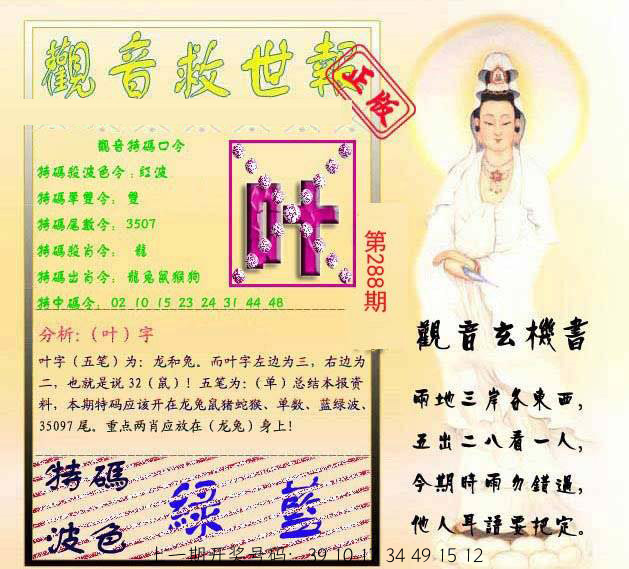 觀音救世報
正版
觀音特碼口令
特碼殺波色令:紅波
特碼單雙令: 雙
特碼尾數令: 3507
特碼殺肖令: 龍
特碼出肖令: 龍兔鼠猴狗
特中碼令: 02 10 15 23 24 31 44 48
叶
第288期
分析:（叶）字
叶字（五笔）为：龙和兔。而叶字左边为三，右边为
二，也就是说 32（鼠）！五笔为:（单）总结本报资
料，本期特码应该开在龙兔鼠猪蛇猴、单数、蓝绿波、
35097 尾。重点两肖应放在（龙兔）身上！
特碼
波色
綠 藍
觀音玄機書
兩地三岸各東西,
五出二八看一人,
今期時雨勿錯過,
他人耳語要把定。